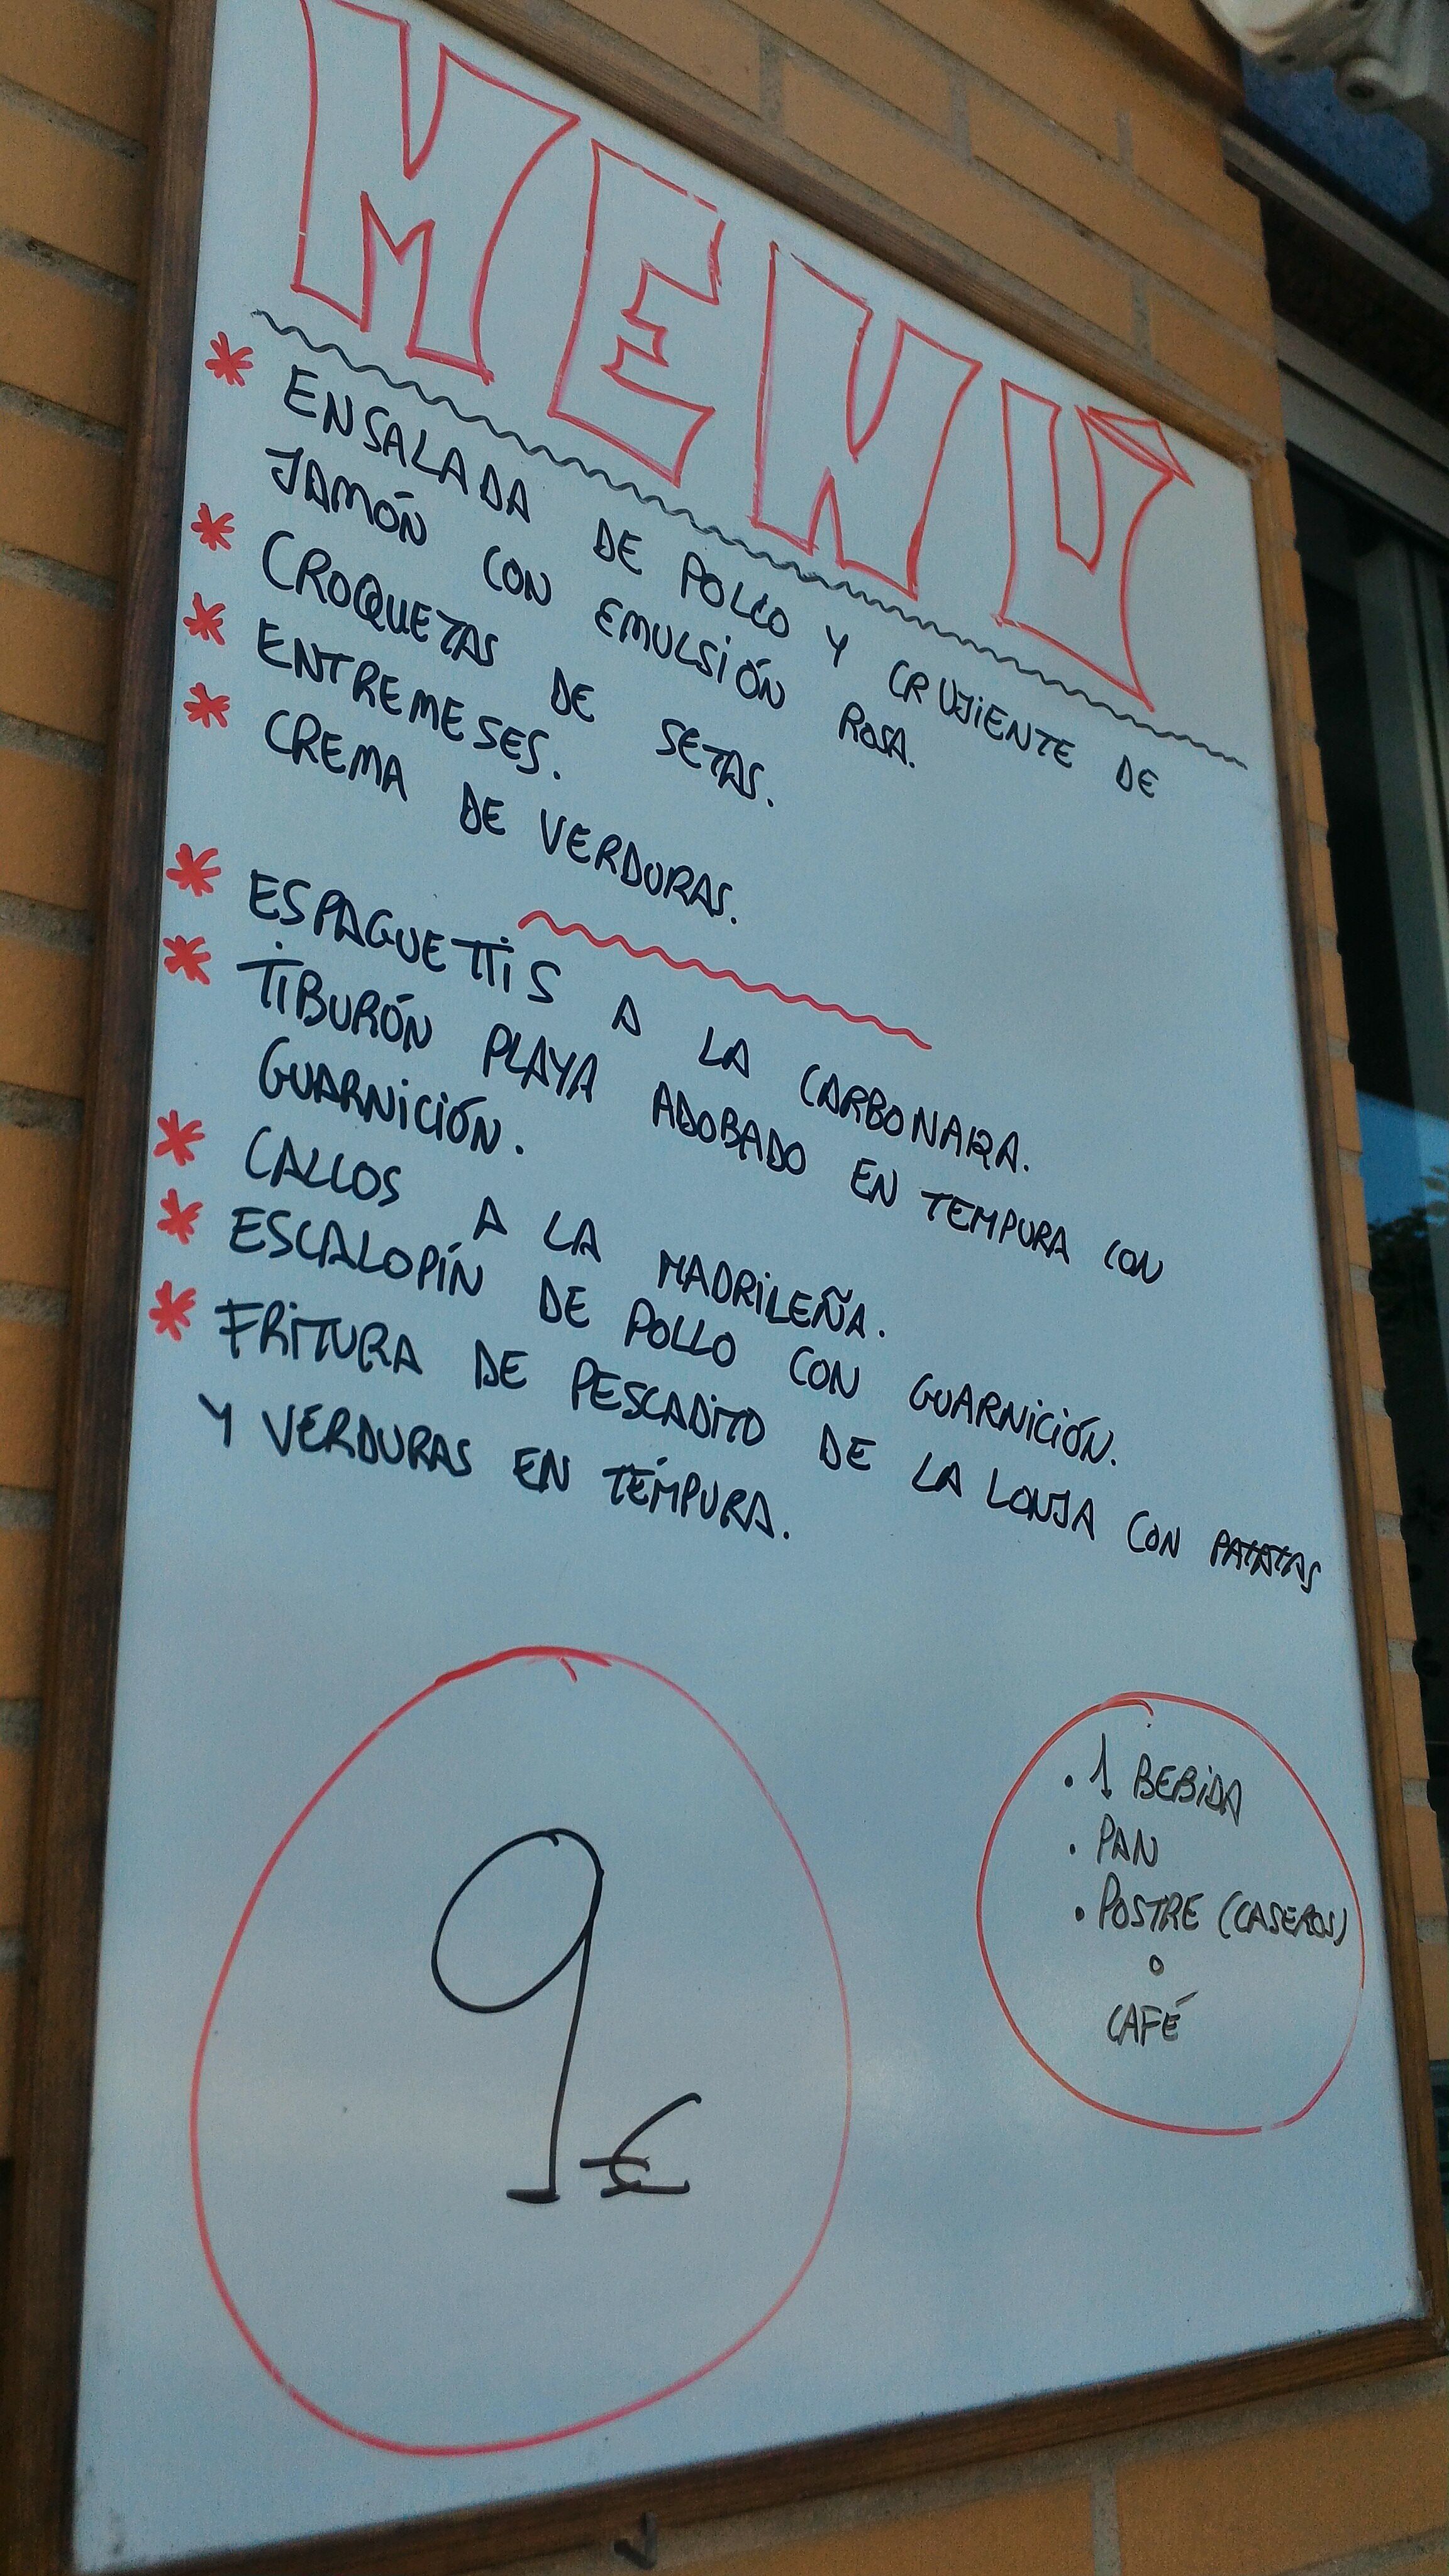 MENÚ
* ENSALADA DE POLLO Y CRUJIENTE DE
JAMÓN CON EMULSIÓN ROSA.
* CROQUETAS DE SETAS.
* ENTREMESES.
* CREMA DE VERDURAS.
* ESPAGUETTIS A LA CARBONARA.
* TIBURÓN PLAYA ADOBADO EN TEMPURA CON
GUARNICIÓN.
* CALLOS A LA MADRILEÑA.
* ESCALOPÍN DE POLLO CON GUARNICIÓN.
* FRITURA DE PESCADITO DE LA LONJA CON PATATAS
Y VERDURAS EN TÉMPURA.
9€
• 1 BEBIDA
• PAN
• POSTRE (CASEROS)
o
CAFÉ